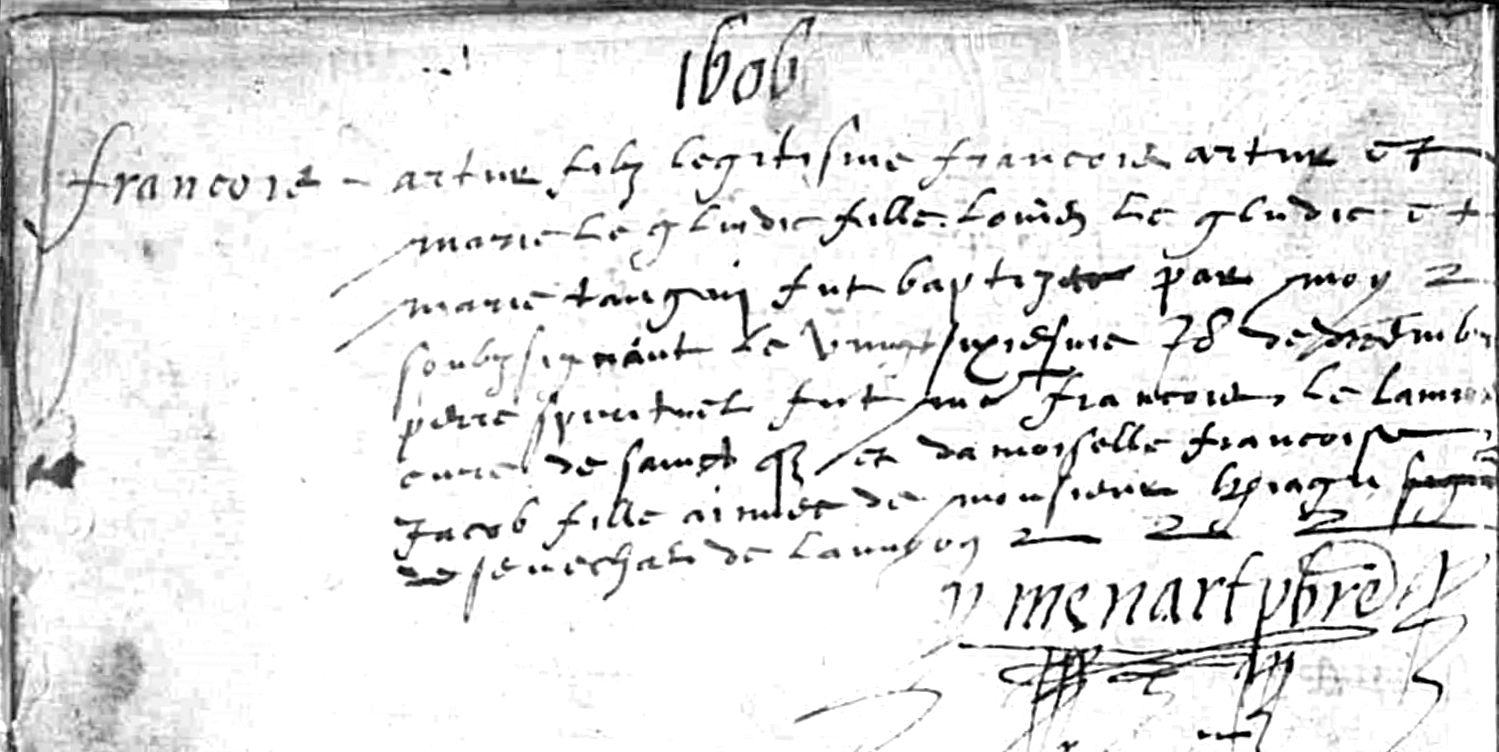 1606
francois artur filz legitisme francois artur et
marie le gludic fille Louis le gludic et
marie fut baptize par moy
soubzsignant le vingt sixiesme de decemb
perre spirituel fut me francois le
curre de sainct et damoiselle francoise
Jacob fille aimee de monsieur
senechal de Lannion
y menart pbre